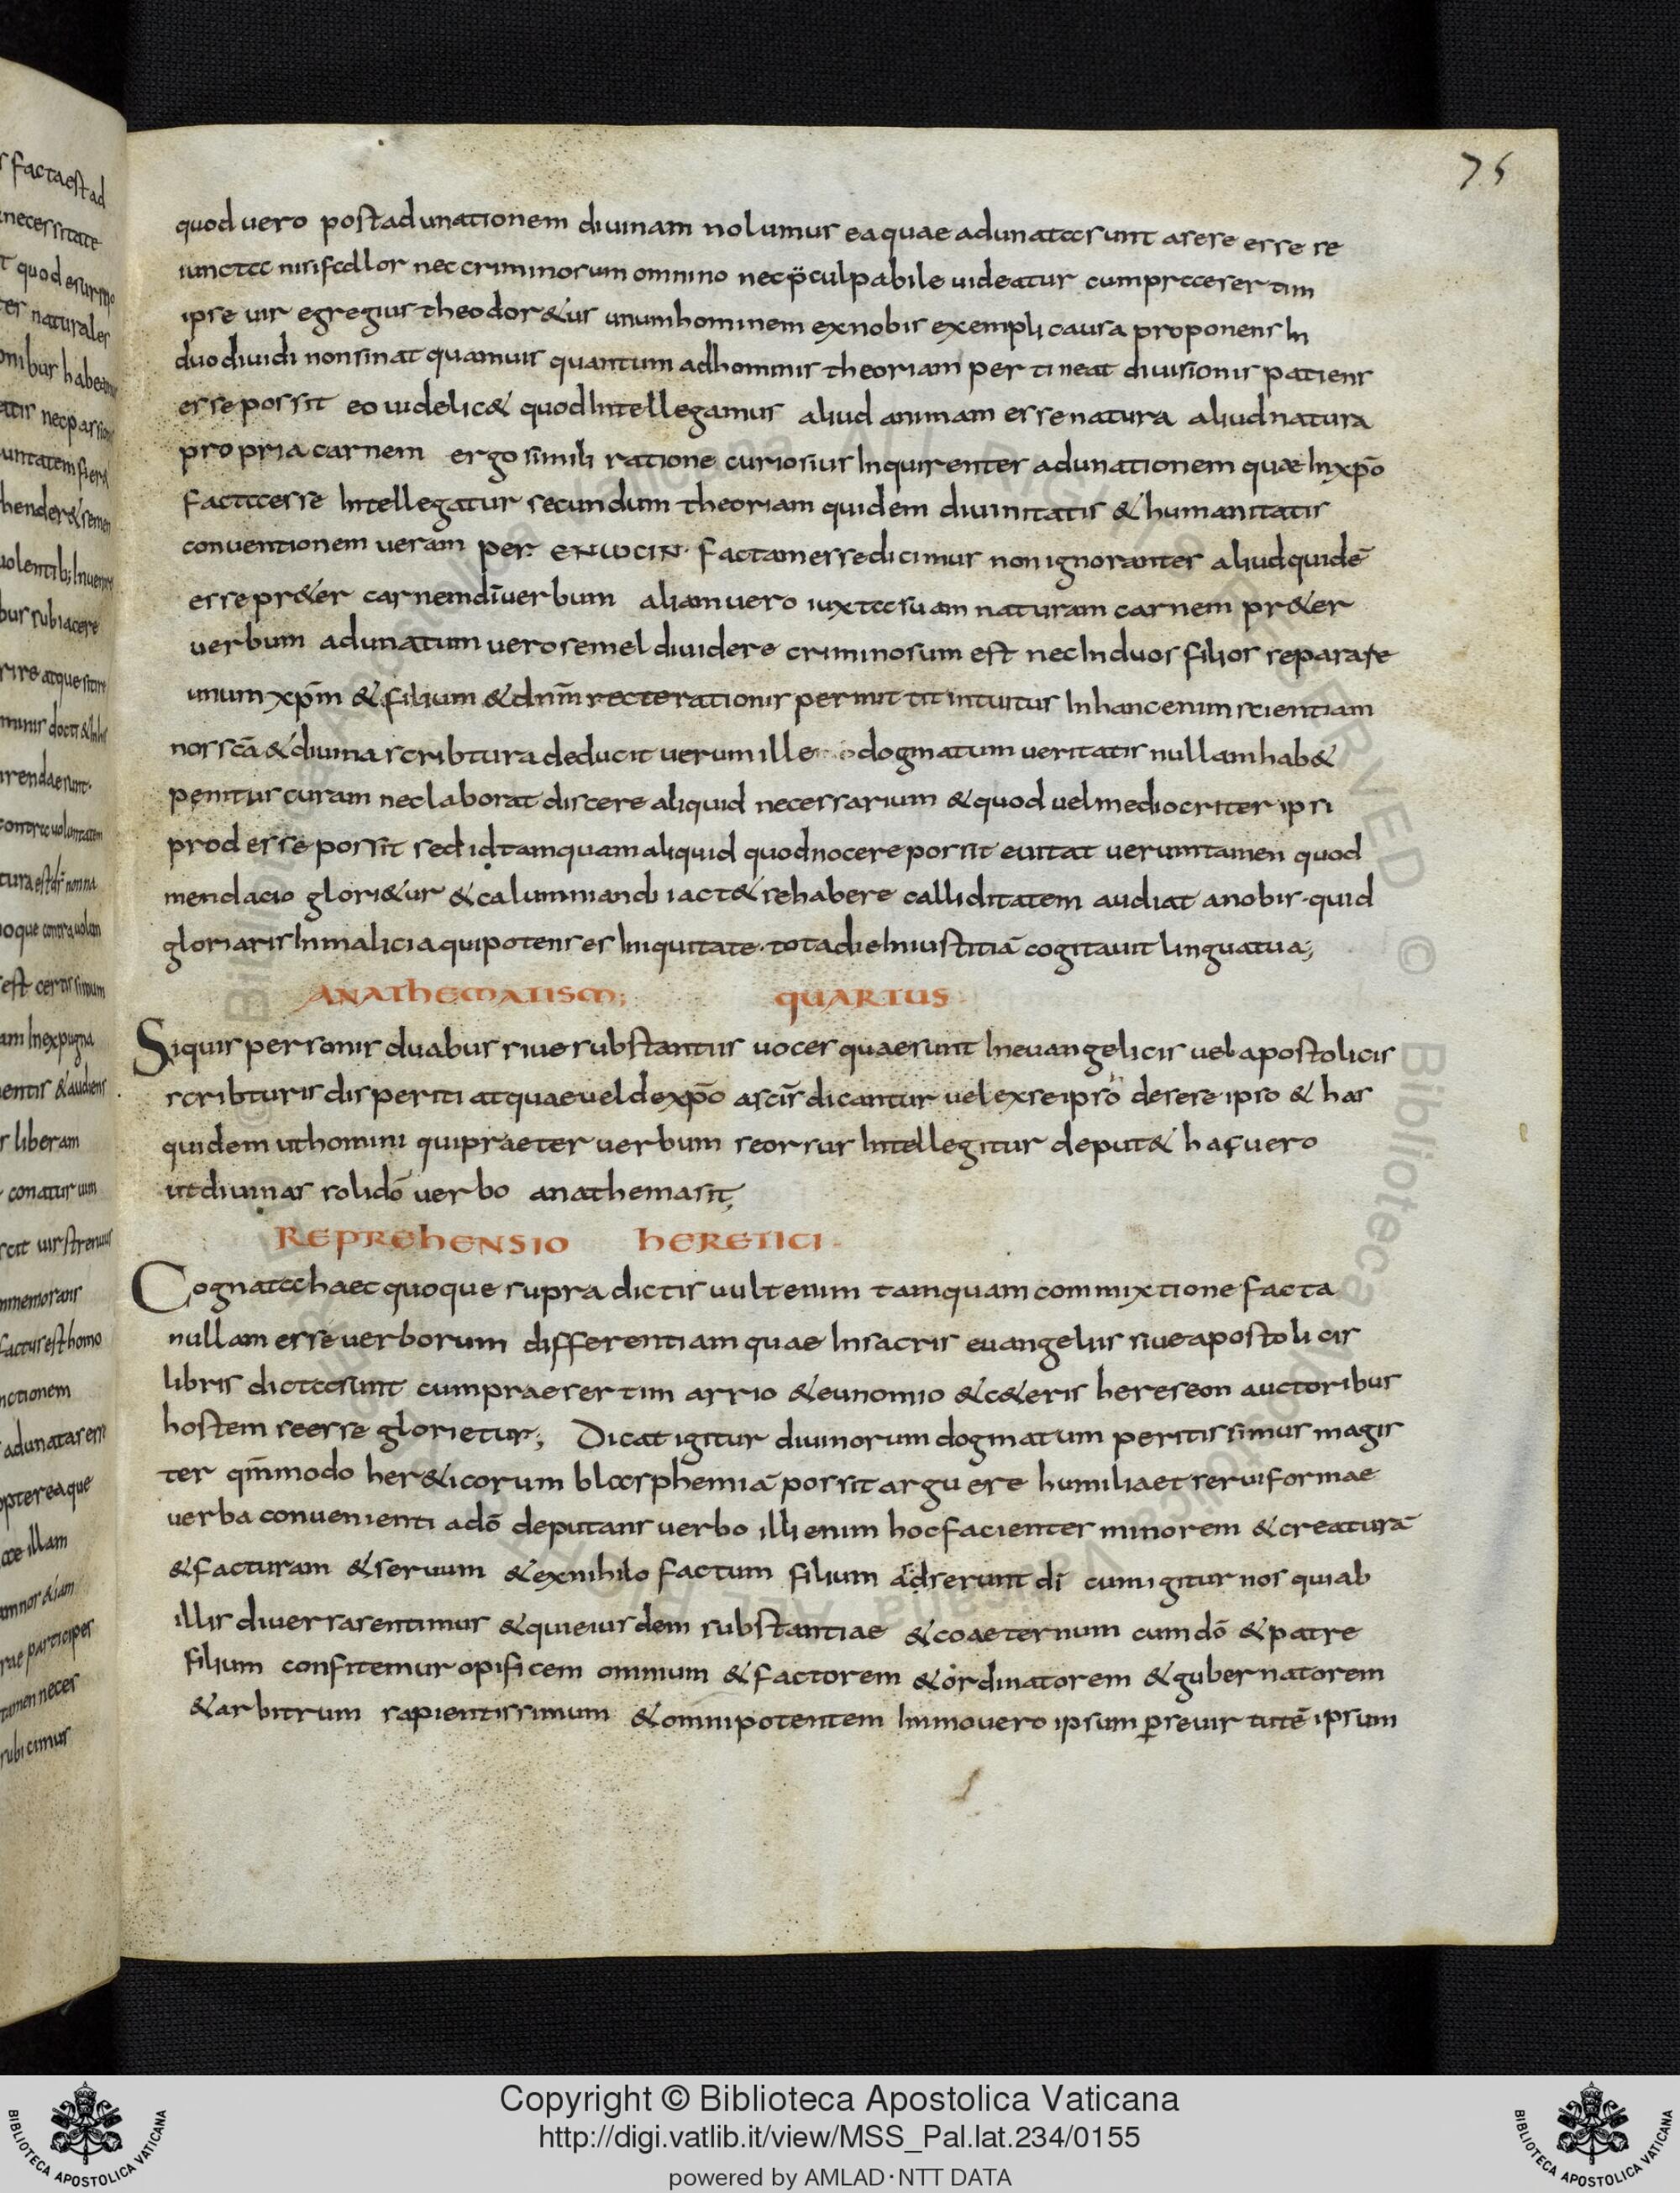 75
quod uero post adunationem diuinam nolumus ea quae adunata sunt a se re esse re
iuncta nisi fallor nec criminosum omnino nec culpabile uideatur cum praesertim
ipse uir egregius theodor&us unum hominem ex nobis exempli causa proponens In
duo diuidi non sinat quamuis quantum ad hominis theoriam pertineat diuisionis patiens
esse possit eo uidelic& quod Intellegamus aliud animam esse natura aliud natura
propria carnem ergo simili ratione curiosius Inquirentes adunationem quae In xp̄o
facta esse Intellegatur secundum theoriam quidem diuinitatis & humanitatis
conuentionem ueram per· ENωCIN· factam esse dicimus non ignorantes aliud quidē
esse pr&er carnem dī uerbum aliam uero iuxta suam naturam carnem pr&er
uerbum adunatum uero semel diuidere criminosum est nec In duos filios separare
unum xp̄m & filium & dnm̄ recte rationis permittit intuitus In hanc enim scientiam
nos scā & diuina scribtura deducit uerum ille dogmatum ueritatis nullam hab&
penitus curam nec laborat discere aliquid necessarium & quod uel mediocriter ipsi
prodesse possit sed id tamquam aliquid quod nocere possit euitat uerumtamen quod
mendacio glori&ur & calumniandi iact& se habere calliditatem audiat a nobis· quid
gloriaris In malicia qui potens es Iniquitate· tota die Iniustitiā cogitauit lingua tua;
ANATHEMATISM; QUARTUS
Si quis personis duabus siue substantiis uoces quae sunt In euangelicis uel apostolicis
scribturis disperiti atquae uel de xp̄o a scīs dicantur uel ex se ipso de se re ipso & has
quidem ut homini qui praeter uerbum seorsus Intellegitur deput& has uero
ut diuinas soli dō uerbo anathema sit;
REPREHENSIO HERETICI·
Cognata haec quoque supra dictis uult enim tamquam commixtione facta
nullam esse uerborum differentiam quae In sacris euangeliis siue apostolicis
libris dicta sunt cum praesertim arrio & eunomio & c&eris hereseon auctoribus
hostem se esse glorietur; Dicat igitur diuinorum dogmatum peritissimus magis
ter qm̄modo her&icorum blasphemiā possit arguere humilia et serui formae
uerba conuenienti a dō deputans uerbo illi enim hoc facientes minorem & creaturā
& facturam & seruum & ex nihilo factum filium adserunt dī cum igitur nos qui ab
illis diuersa sentimus & qui eiusdem substantiae & coaeternum cum dō & patre
filium confitemur opificem omnium & factorem & ordinatorem & gubernatorem
& arbitrum sapientissimum & omnipotentem Immo uero ipsum per se uirtutē ipsum
Copyright © Biblioteca Apostolica Vaticana
http://digi.vatlib.it/view/MSS_Pal.lat.234/0155
powered by AMLAD·NTT DATA
BIBLIOTECA APOSTOLICA VATICANA
BIBLIOTECA APOSTOLICA VATICANA